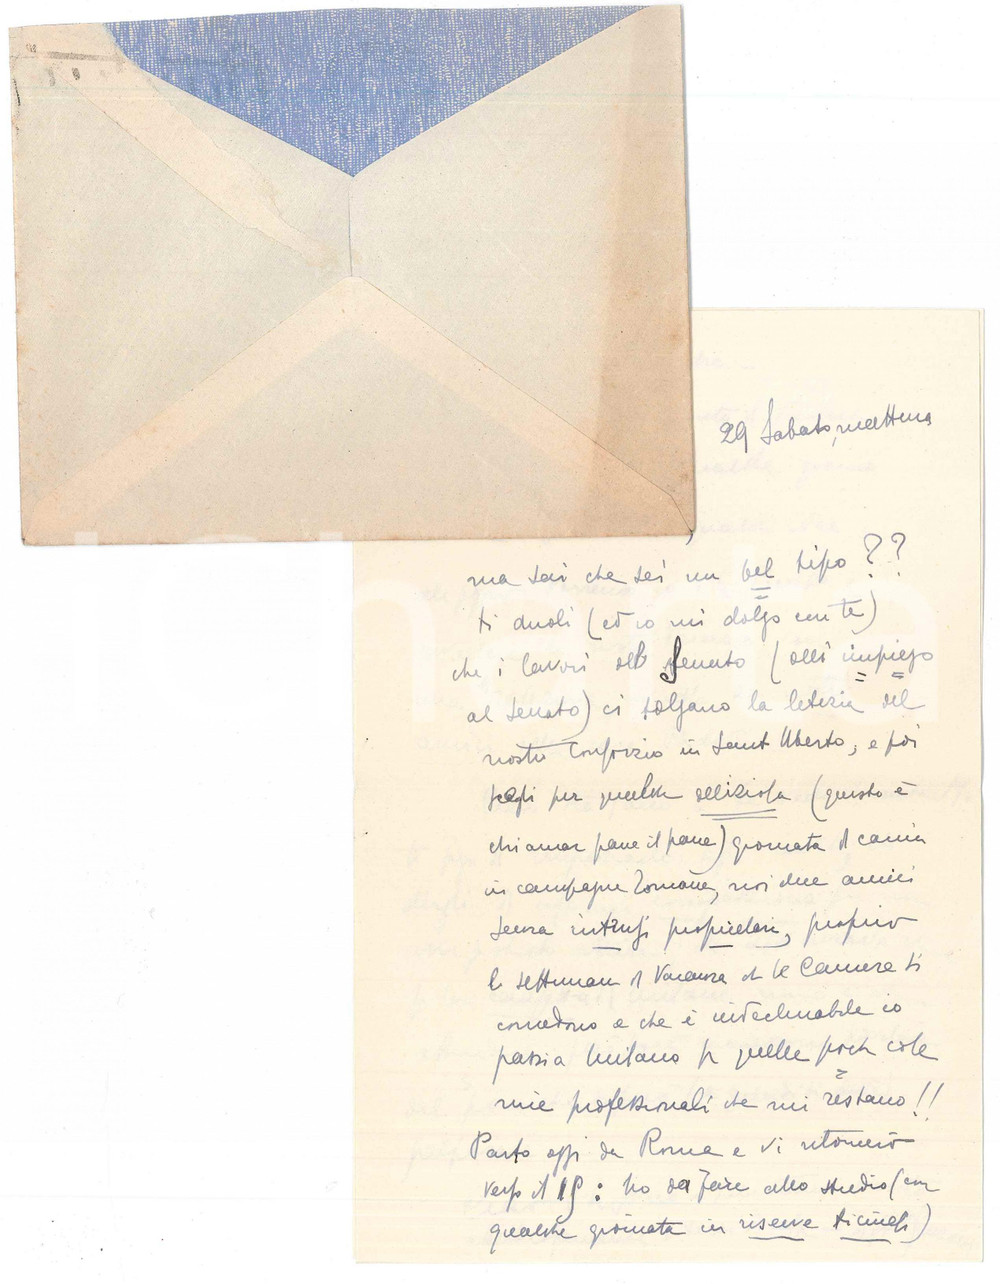 29 Sabato, mattina
ma sai che sei un bel tipo??
ti duoli (ed io mi dolgo con te)
che i lavori del Senato (dell'impiego
al Senato) ci tolgano la letizia del
nostro Consorzio in Sant'Uberto, e poi
scegli per qualche deliziosa (questo è
chiamar pane il pane) giornata di caccia
in campagna romana, noi due amici
senza intrusi proprietari, proprio
la settimana di vacanza che le Camere ti
concedono e che è indeclinabile io
passi a Milano per quelle poche cose
mie professionali che mi restano!!
Parto oggi da Roma e vi ritornerò
verso il 15: ho da fare allo studio (con
qualche giornata in riserve ticinesi)